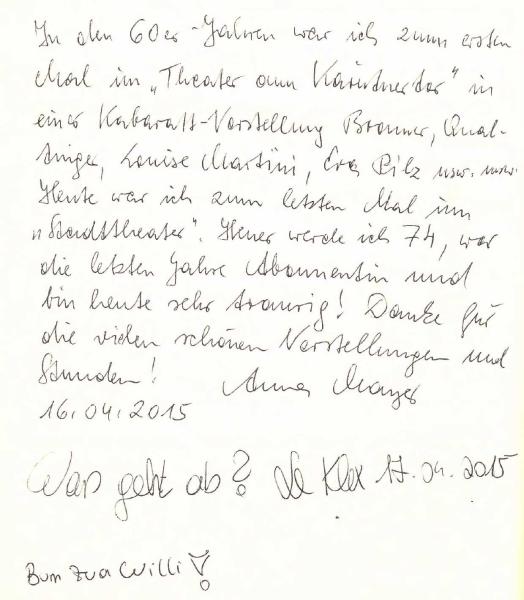 In den 60er-Jahren war ich zum ersten
Mal im „Theater am Kärntnertor" in
einer Kabarett-Vorstellung Bronner, Qual-
tinger, Louise Martini, Eva Pilz usw. usw.
Heute war ich zum letzten Mal im
„Stadttheater". Heuer werde ich 74, war
die letzten Jahre Abonnentin und
bin heute sehr traurig! Danke für
die vielen schönen Vorstellungen und
Stunden! Anna Mayer
16.04.2015
Was geht ab? De Klex 17.04.2015
Bum zua Willi!